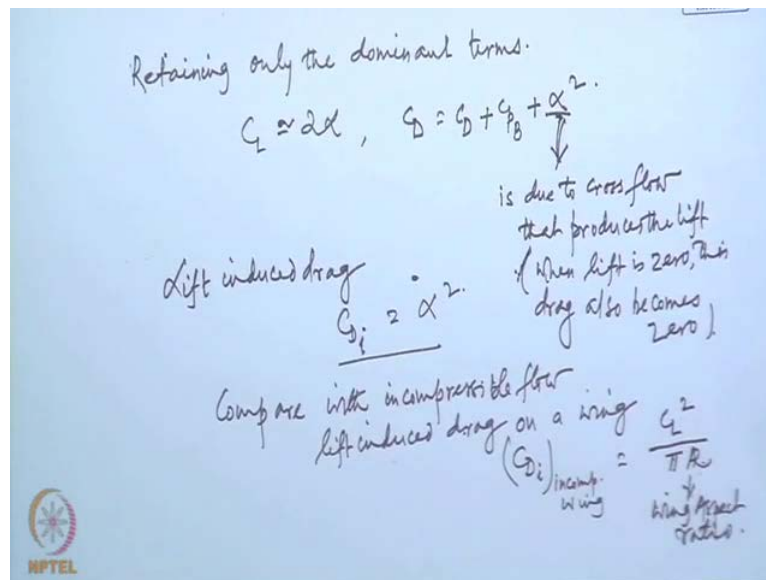 Retaining only the dominant terms.
C_L ≃ 2α, C_D = C_D + C_{P_B} + α².
is due to cross flow
that produces the lift
(when lift is zero, this
drag also becomes
zero).
Lift induced drag
C_{D_i} = α².
Compare with incompressible flow
lift induced drag on a wing
(C_{D_i})_{incomp. wing} = C_L² / πAR
wing Aspect
ratio.
NPTEL